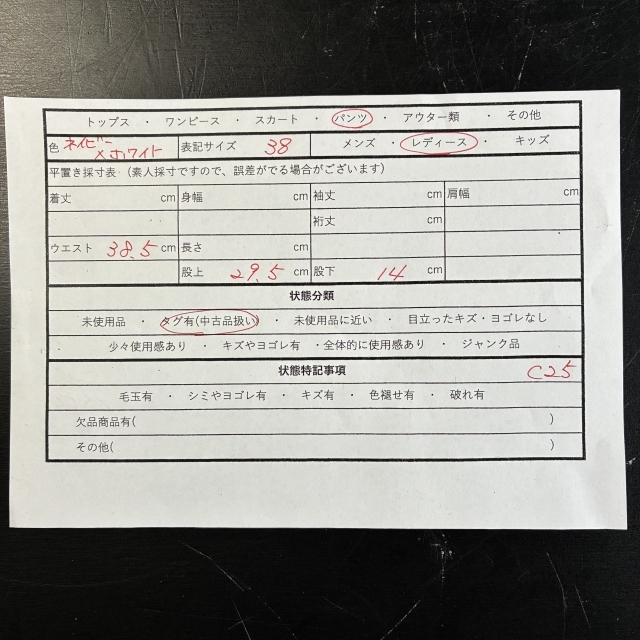 トップス ・ ワンピース ・ スカート ・ パンツ ・ アウター類 ・ その他
色 ネイビー×ホワイト 表記サイズ 38 メンズ ・ レディース ・ キッズ
平置き採寸表（素人採寸ですので、誤差がでる場合がございます）
着丈 cm 身幅 cm 袖丈 cm 肩幅 cm
裄丈 cm
ウエスト 38.5 cm 長さ cm
股上 29.5 cm 股下 14 cm
状態分類
未使用品 ・ タグ有(中古品扱い) ・ 未使用品に近い ・ 目立ったキズ・ヨゴレなし
少々使用感あり ・ キズやヨゴレ有 ・全体的に使用感あり ・ ジャンク品
状態特記事項 C25
毛玉有 ・ シミやヨゴレ有 ・ キズ有 ・ 色褪せ有 ・ 破れ有
欠品商品有( )
その他( )